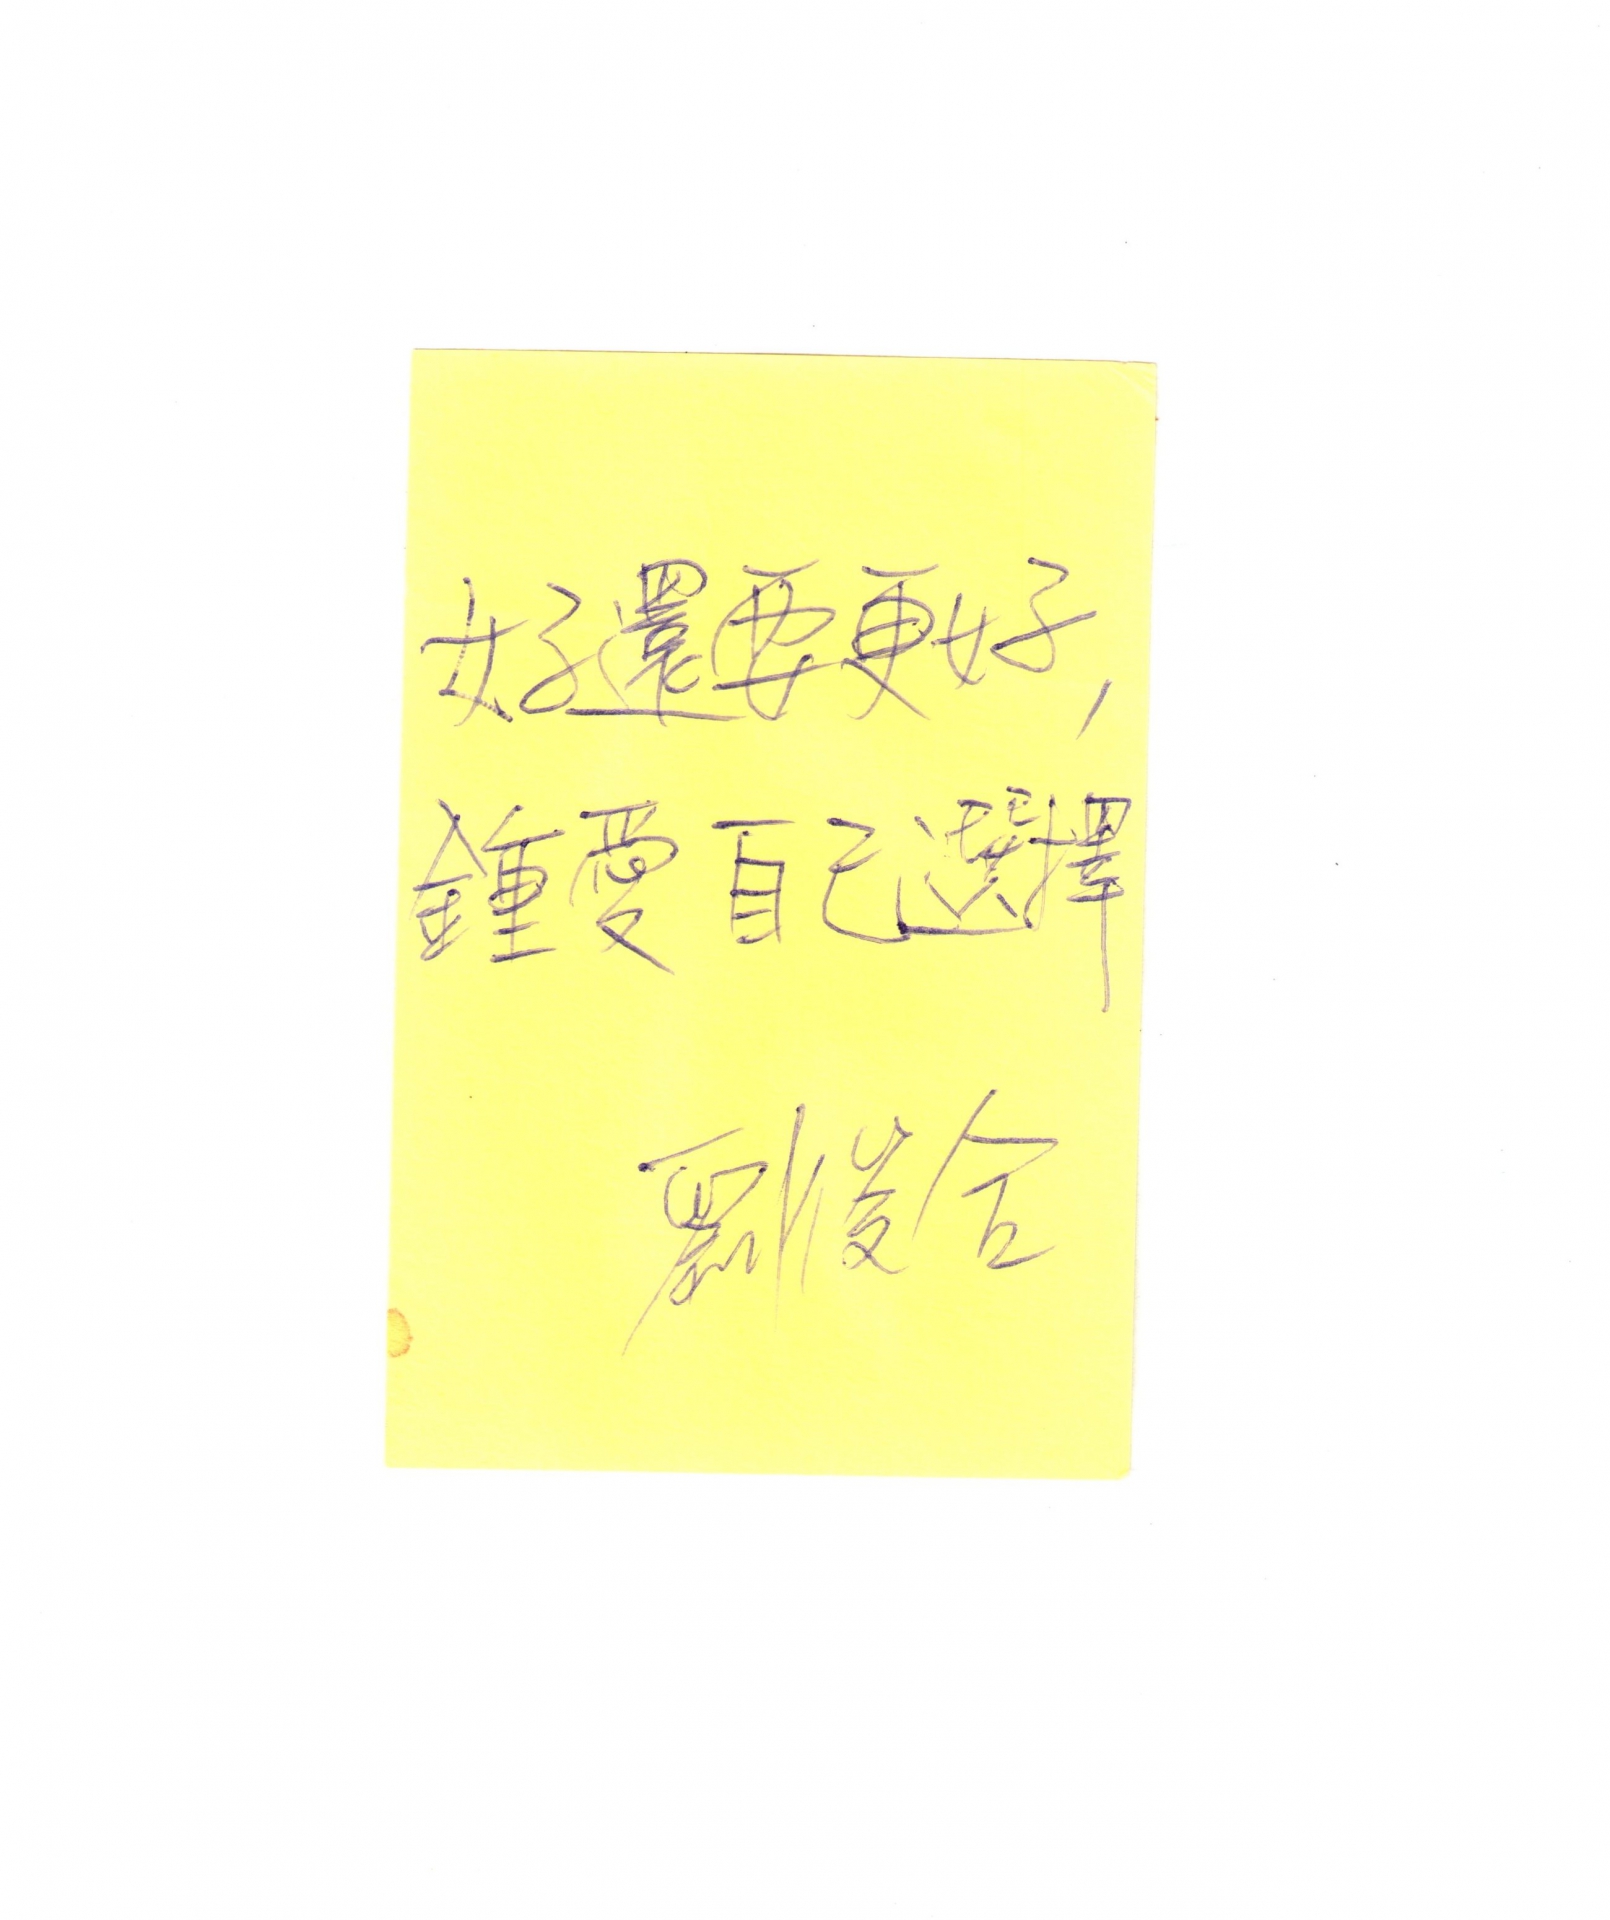 好還要更好，
鍾愛自己選擇
劉俊合